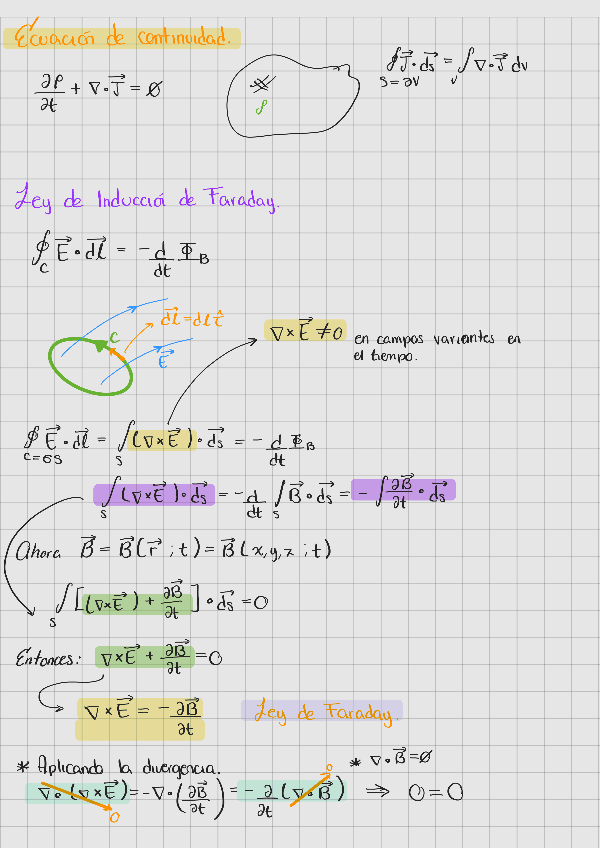 Ecuación de continuidad.
∂ρ/∂t + ∇·J⃗ = ∅
ρ
∮_{S=∂V} J⃗·d⃗s = ∫_V ∇·J⃗ dv
Ley de Inducción de Faraday.
∮_C E⃗·d⃗l = -d/dt Φ_B
C
d⃗l = dl t̂
E⃗
∇×E⃗ ≠ 0 en campos variantes en
el tiempo.
∮_{C=∂S} E⃗·d⃗l = ∫_S (∇×E⃗)·d⃗s = -d/dt Φ_B
∫_S (∇×E⃗)·d⃗s = -d/dt ∫_S B⃗·d⃗s = -∫ ∂B⃗/∂t·d⃗s
Ahora B⃗ = B⃗(r⃗;t) = B⃗(x,y,z;t)
∫_S [(∇×E⃗) + ∂B⃗/∂t]·d⃗s = 0
Entonces: ∇×E⃗ + ∂B⃗/∂t = 0
∇×E⃗ = -∂B⃗/∂t Ley de Faraday.
* Aplicando la divergencia. * ∇·B⃗ = ∅
∇·(∇×E⃗) = -∇·(∂B⃗/∂t) = -∂/∂t (∇·B⃗) ⟹ 0 = 0
0
0